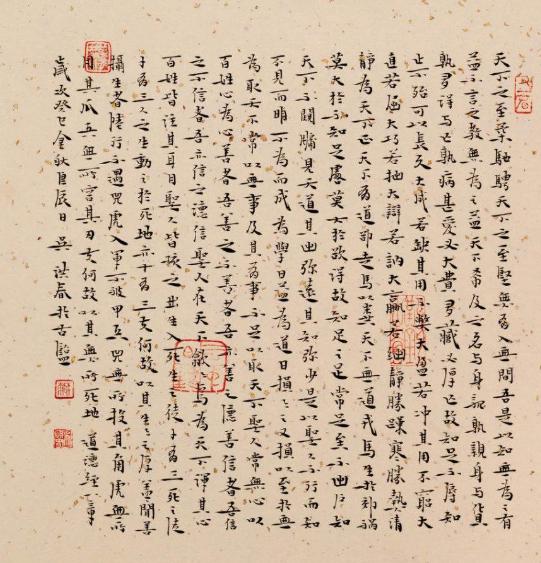 天下之至柔馳騁天下之至堅無有入無間吾是以知無為之有
益不言之教無為之益天下希及之名与身孰親身与貨
孰多得与亡孰病甚愛必大費多藏必厚亡故知足不辱知
止不殆可以長久大成若缺其用不弊大盈若冲其用不窮大
直若屈大巧若拙大辯若訥大贏若絀靜勝躁寒勝熱清
靜為天下正天下有道却走馬以糞天下無道戎馬生於郊禍
莫大於不知足咎莫大於欲得故知足之足常足矣不出户知
天下不闚牖見天道其出弥遠其知弥少是以聖人不行而知
不見而明不為而成為學日益為道日損損之又損以至於無
為取天下常以無事及其有事不足以取天下聖人常無心以
百姓心為心善者吾善之不善者吾亦善之德善信者吾信
之不信者吾亦信之德信聖人在天下歙歙焉為天下渾其心
百姓皆注其耳目聖人皆孩之出生入死生之徒十有三死之徒
十有三人之生動之於死地亦十有三夫何故以其生生之厚蓋聞善
攝生者陸行不遇兕虎入軍不被甲兵兕無所投其角虎無所
用其爪兵無所容其刃夫何故以其無所死地 道德經下章
歲次癸巳金秋良辰日吳洪春於古